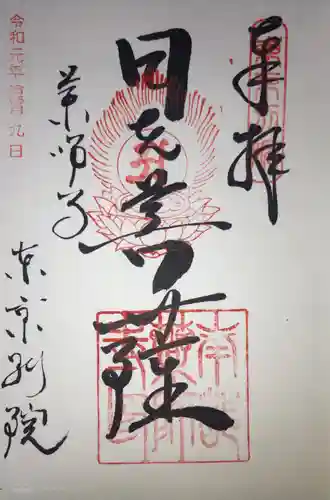 奉拝
日光菩薩
薬師寺
東京別院
令和元年
月九日